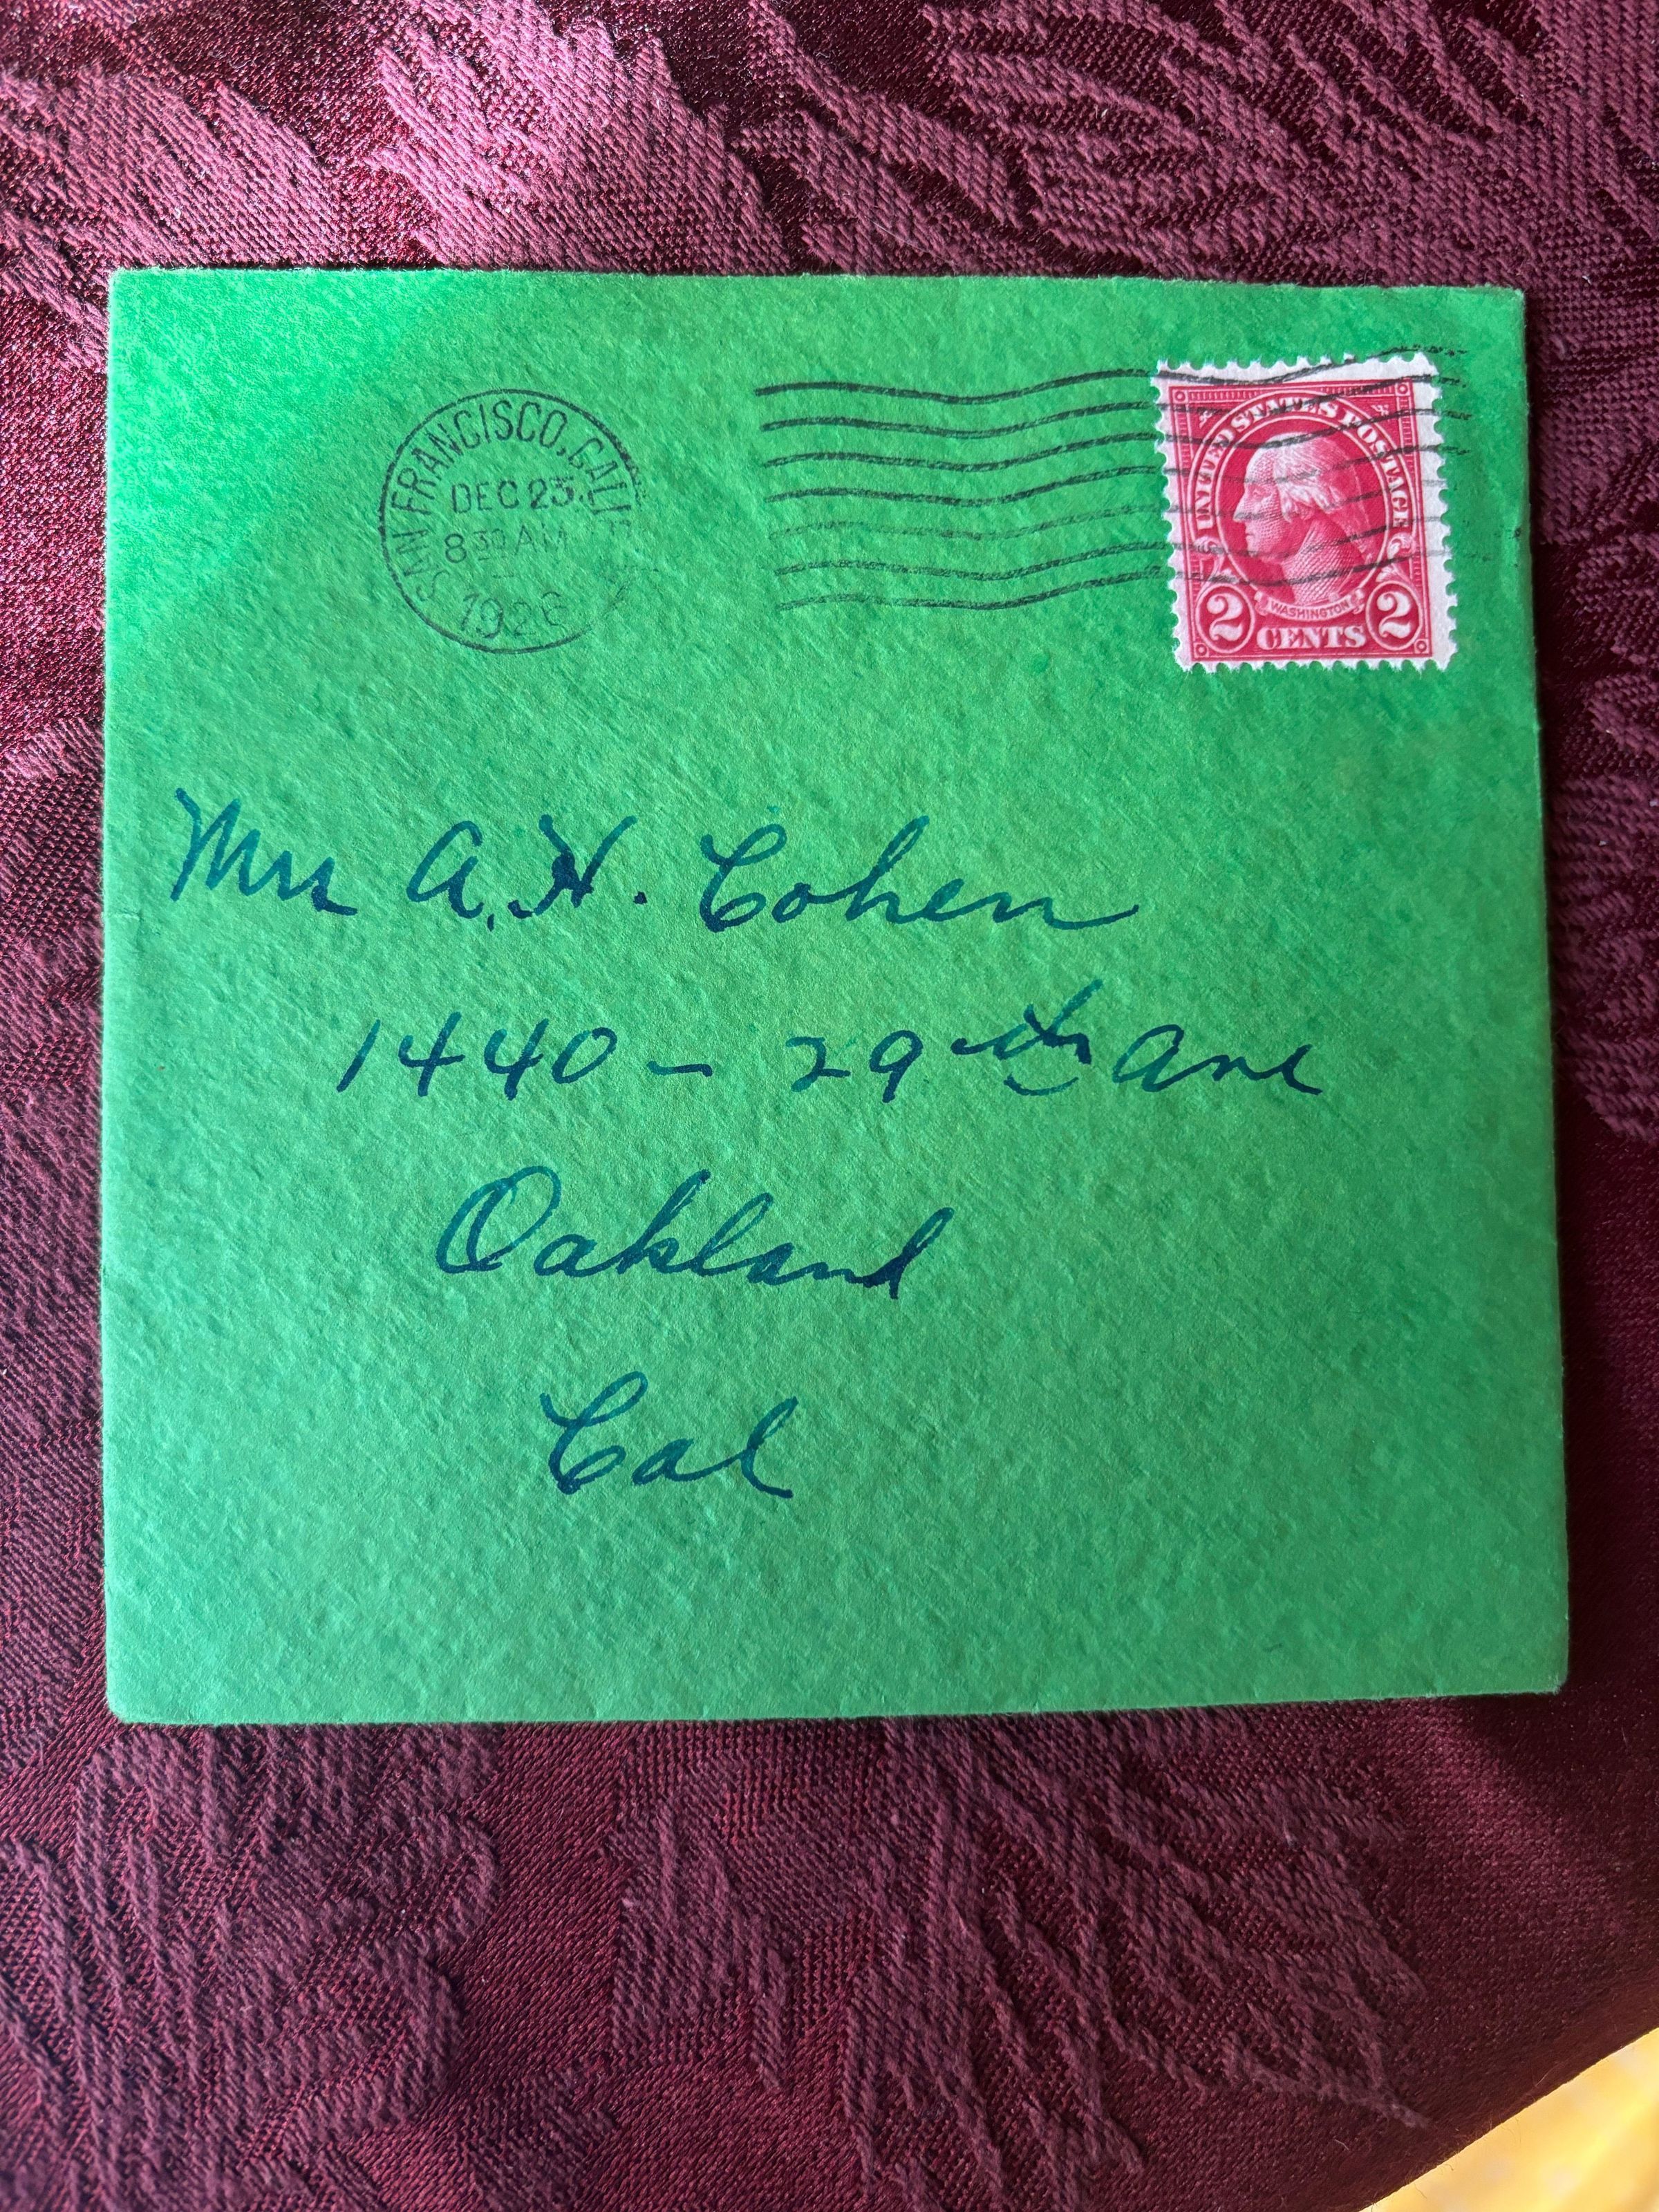 SAN FRANCISCO, CALIF.
DEC 23
8 30 AM
1926
UNITED STATES POSTAGE
WASHINGTON
2 CENTS 2
Mrs A. H. Cohen
1440 - 29th Ave
Oakland
Cal